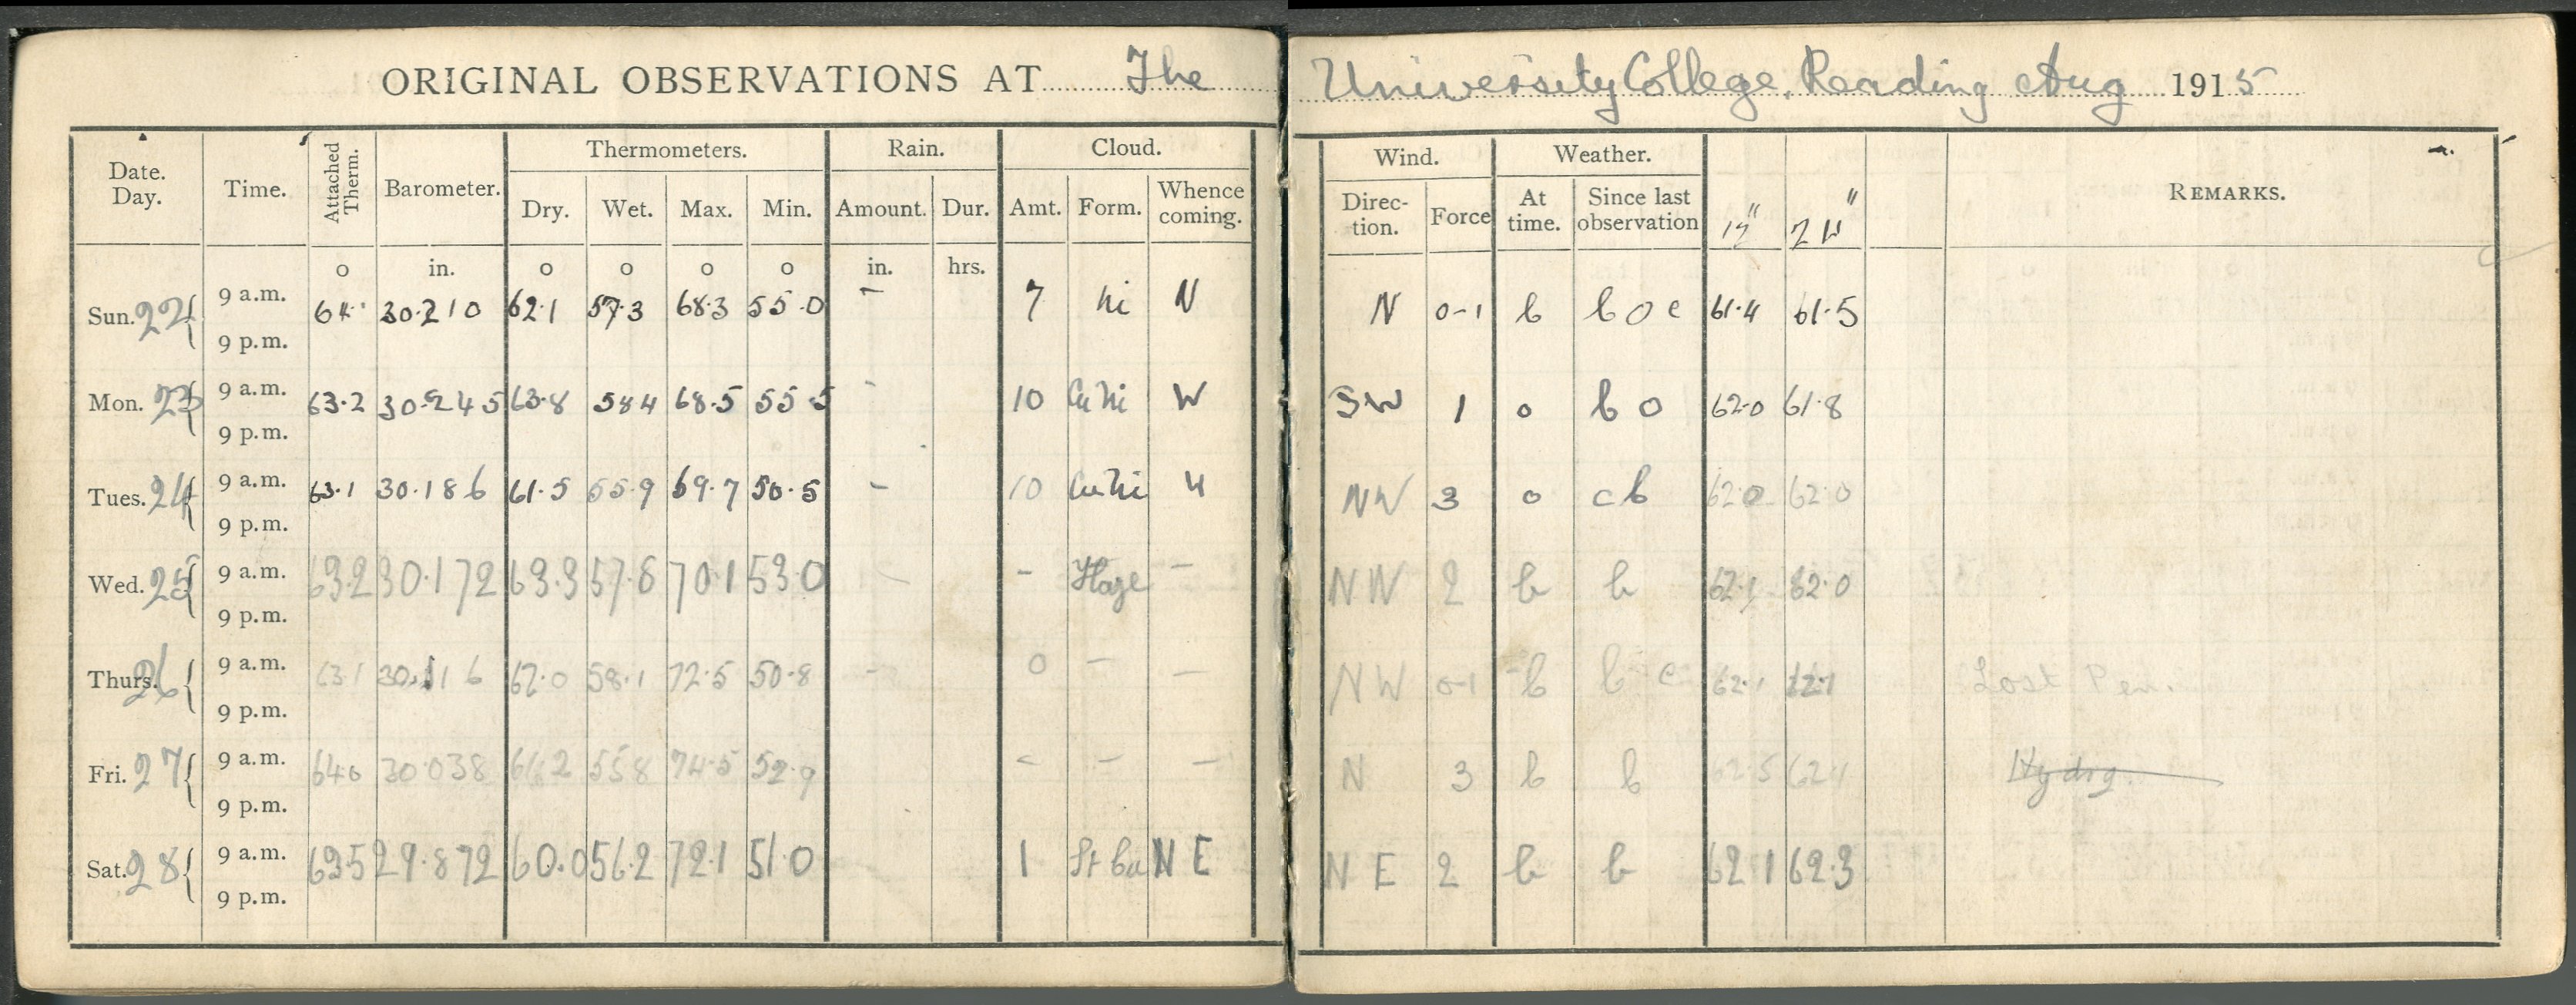 ORIGINAL OBSERVATIONS AT The University College, Reading Aug 1915
Date. Day. Time. Attached Therm. Barometer. Thermometers. Rain. Cloud. Wind. Weather. REMARKS.
Dry. Wet. Max. Min. Amount. Dur. Amt. Form. Whence coming. Direc-tion. Force At time. Since last observation 12" 24"
o in. o o o o in. hrs.
Sun. 22 9 a.m. 64· 30·210 62·1 57·3 68·3 55·0 - 7 Ni N N 0-1 b b o c 61·4 61·5
9 p.m.
Mon. 23 9 a.m. 63·2 30·245 63·8 58 4 68·5 55 5 - 10 Cu Ni W SW 1 o b o 62·0 61·8
9 p.m.
Tues. 24 9 a.m. 63·1 30·186 61·5 55·9 69·7 50·5 - 10 Cu Ni NW 3 o c b 62·0 62·0
9 p.m.
Wed. 25 9 a.m. 63.2 30·172 63.3 57·8 70·1 53 0 - - Haze - NW 2 b b 62·1 62·0
9 p.m.
Thurs. 26 9 a.m. 63 1 30.116 62·0 58·1 72·5 50·8 - 0 - - NW 0-1 b b c 62·1 Lost Pen.
9 p.m.
Fri. 27 9 a.m. 64·0 30·038 55 8 74·5 52·9 - - N 3 b b 62·5 62 4 Hydrg.
9 p.m.
Sat. 28 9 a.m. 63 5 29·872 60.0 56.2 72·1 51·0 1 St Cu N E N E 2 b b 62 1 62·3
9 p.m.